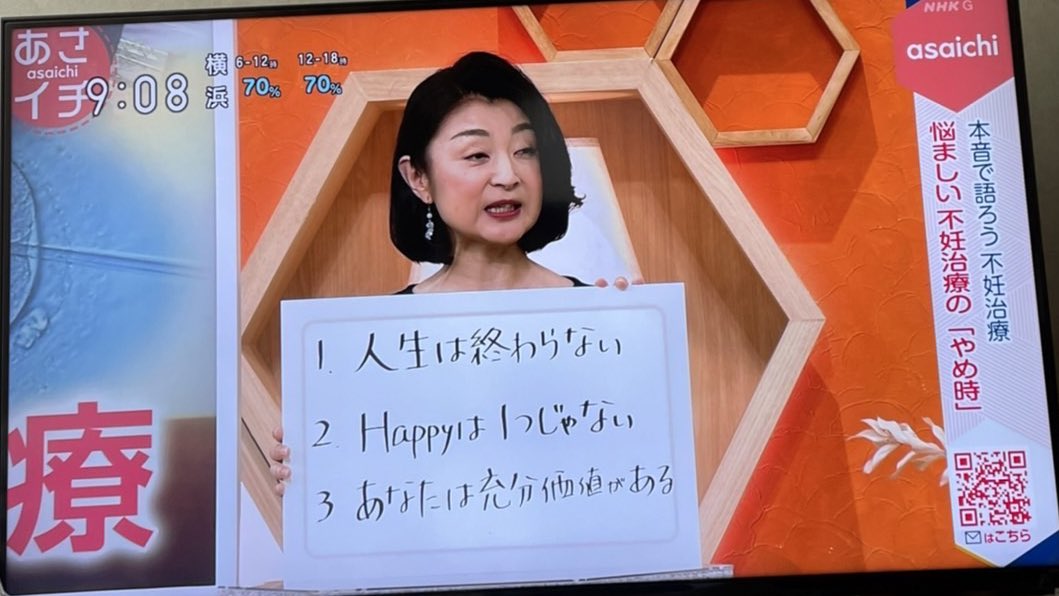 あさ
asaichi
イチ
9:08
横浜
6-12時 12-18時
70% 70%
NHK G
asaichi
本音で語ろう 不妊治療
悩ましい 不妊治療の「やめ時」
1. 人生は終わらない
2. Happyは1つじゃない
3 あなたは充分価値がある
療
はこちら